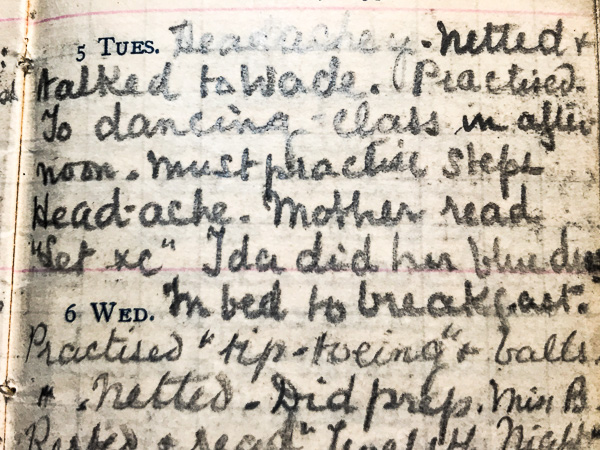 5 TUES. Headachey. Netted +
talked to Wade. Practised.
To dancing-class in after
noon. Must practise steps
Head-ache. Mother read
"Set xc" Ida did her blue
6 WED. In bed to breakfast.
Practised "tip-toeing" + balls.
" . Netted. Did prep. Miss B.
Rested + read Night"